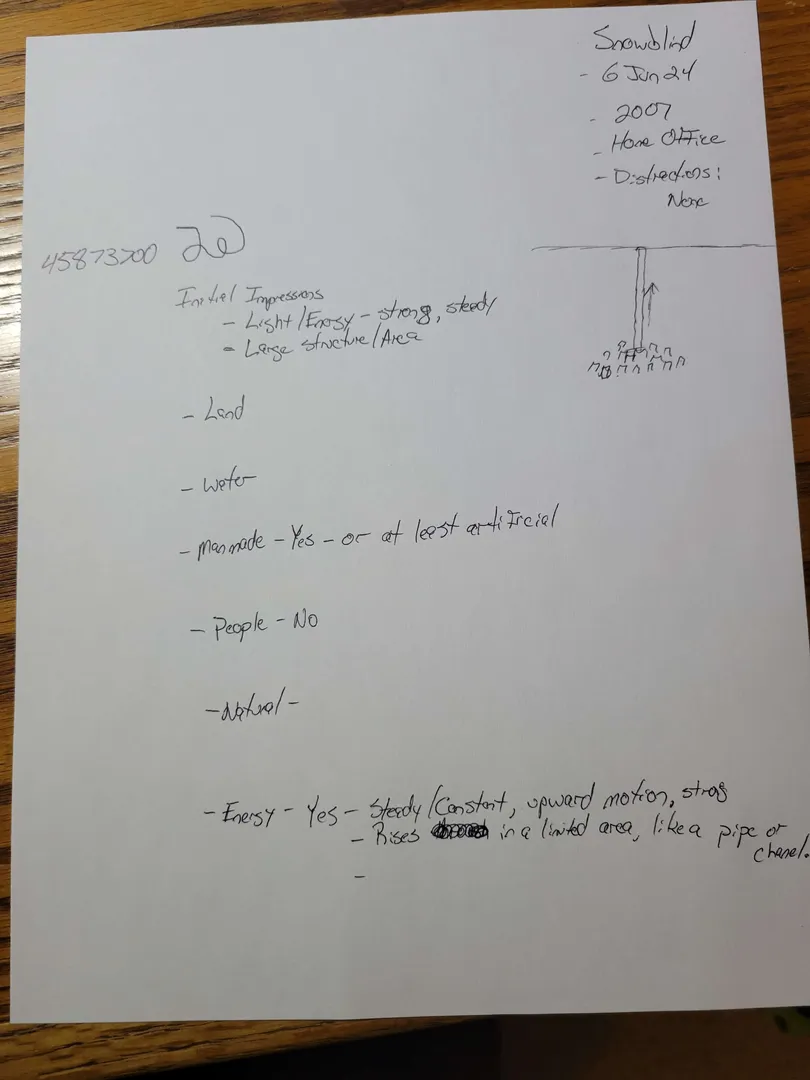 Snowblind
- 6 Jun 24
- 2007
- Home Office
- Distractions:
None
45873700
Initial Impressions
- Light/Energy - strong, steady
- Large structure/Area
- Land
- Water
- Manmade - Yes - or at least artificial
- People - No
- Natural -
- Energy - Yes - Steady/Constant, upward motion, strong
- Rises in a limited area, like a pipe or
chanel.
-